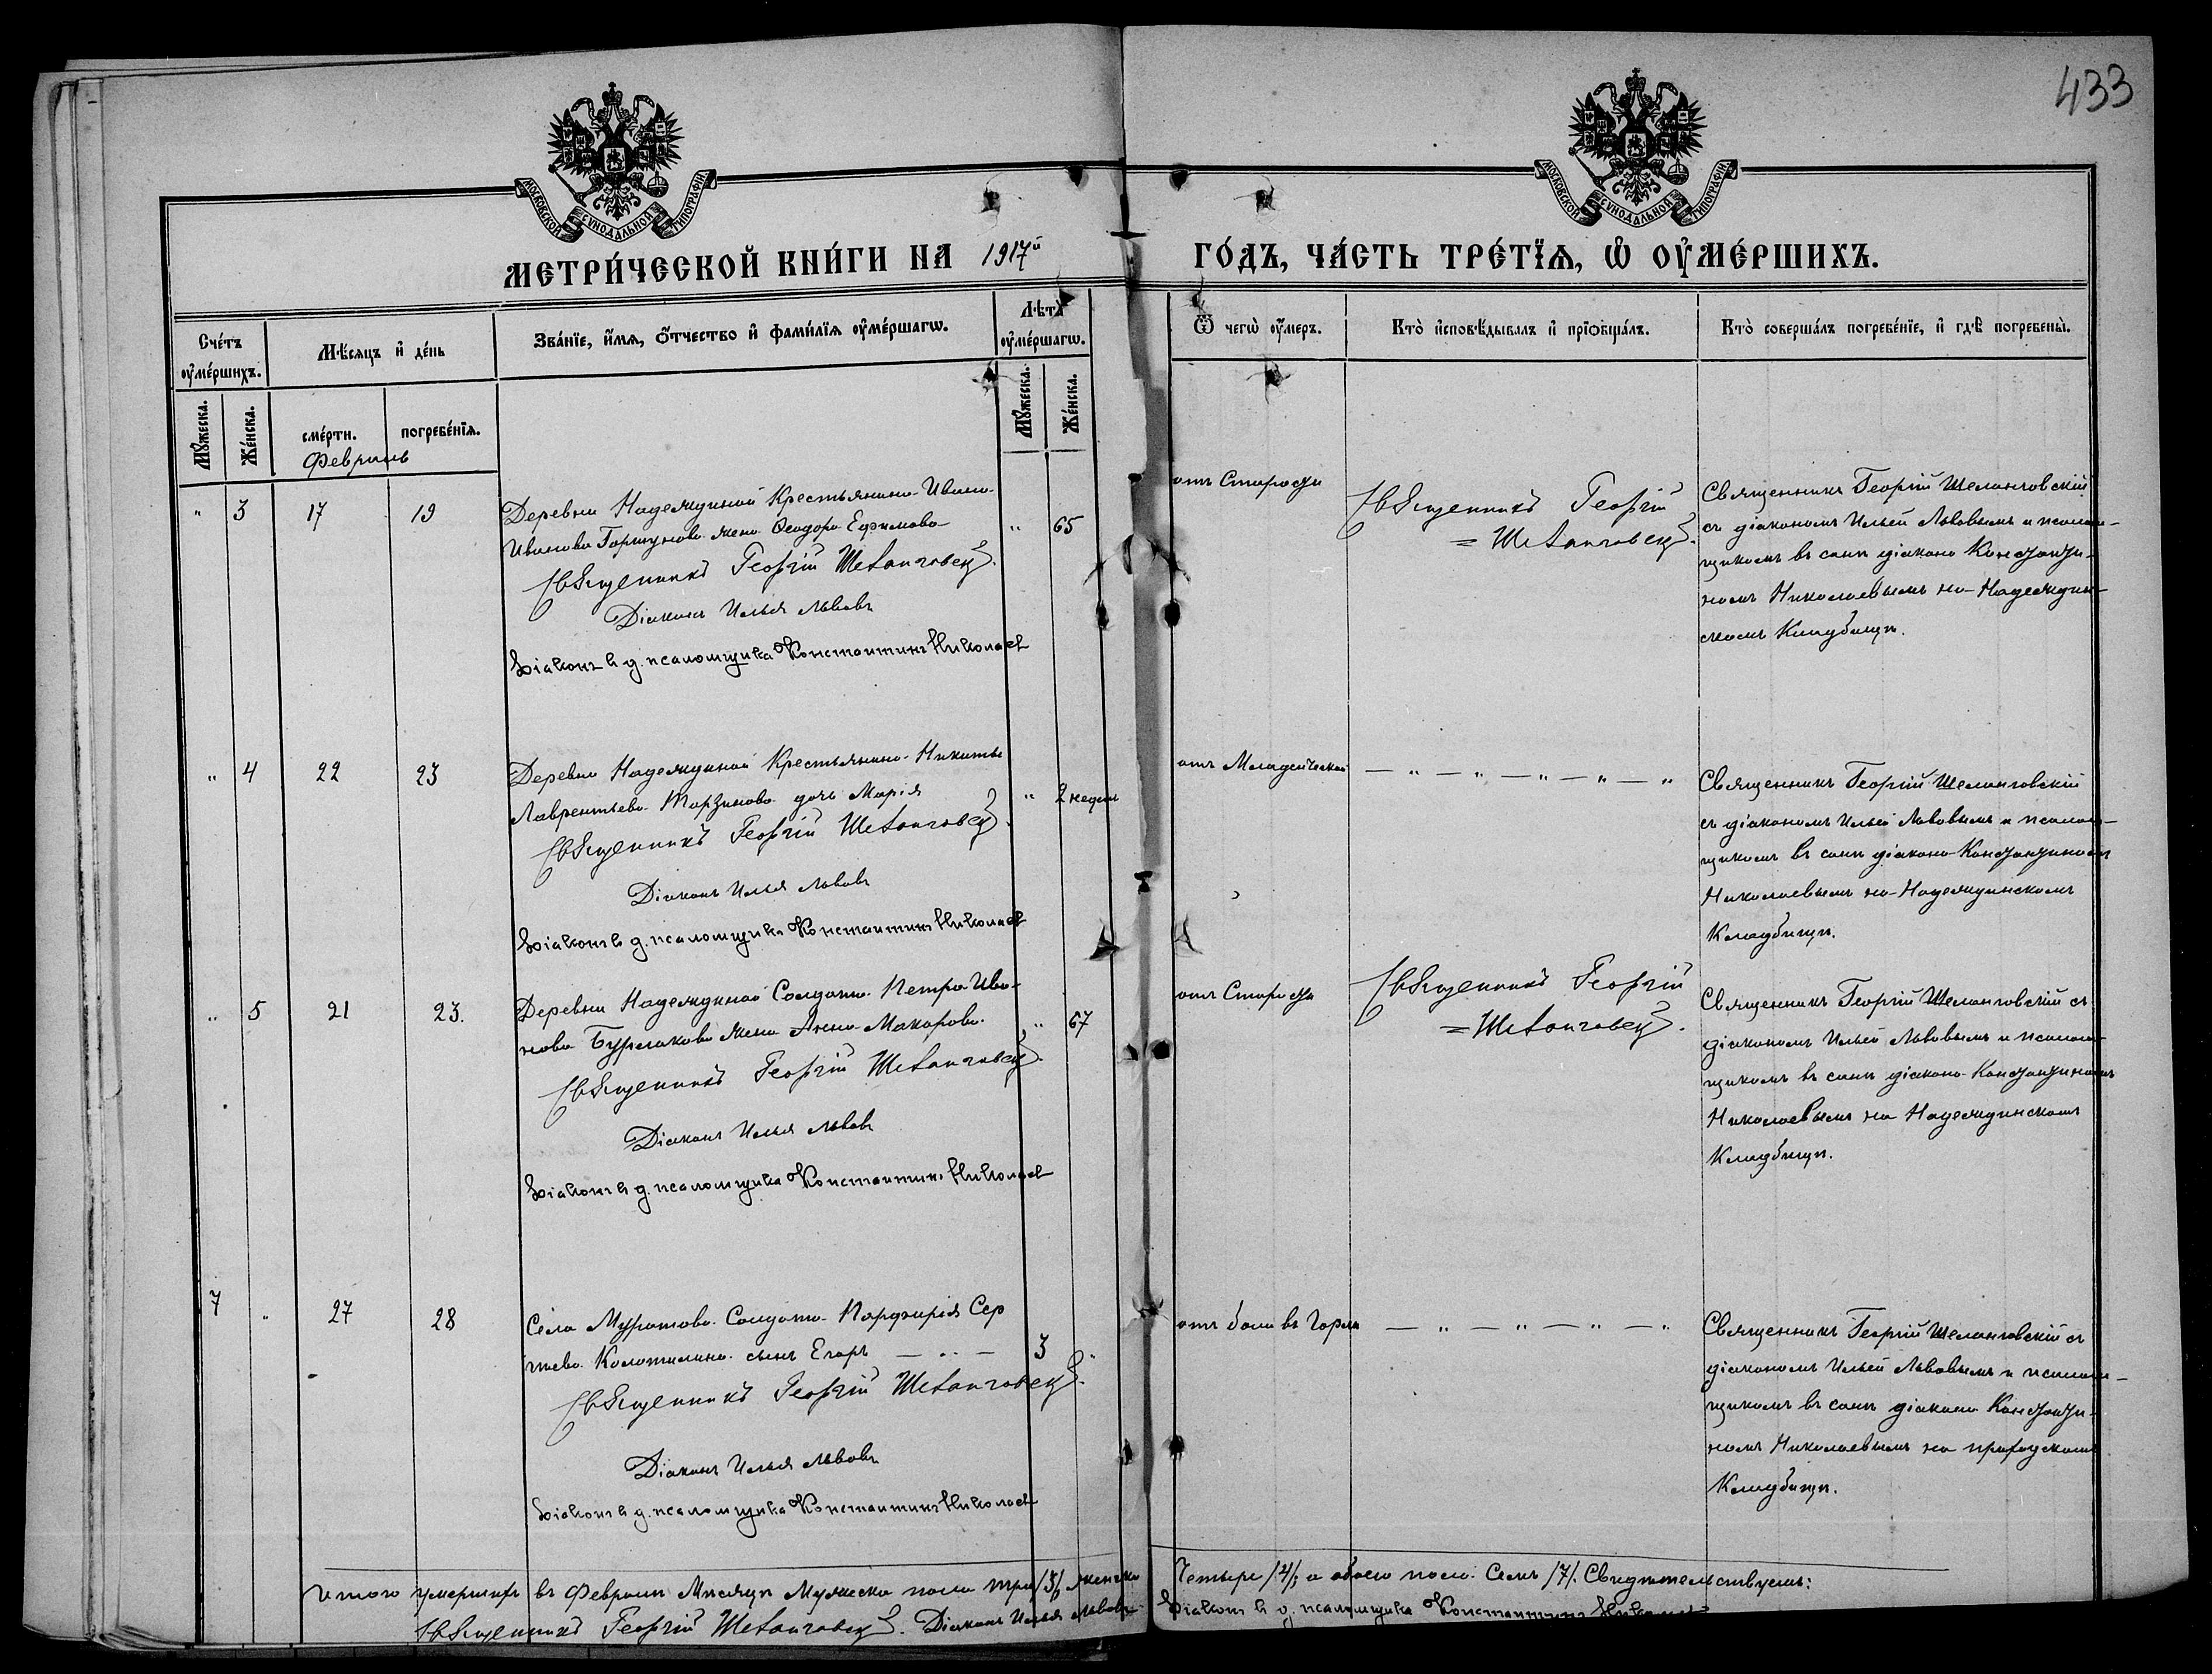 433
МОСКОВСКОЙ СУНОДАЛЬНОЙ ТИПОГРАФІИ
МОСКОВСКОЙ СУНОДАЛЬНОЙ ТИПОГРАФІИ
МЕТРИ́ЧЕСКОЙ КНИ́ГИ НА 1917й ГО́ДЪ, ЧА́СТЬ ТРЕ́ТЇѦ, Ѡ ОУ҆МЕ́РШИХЪ.
Сче́тъ оу҆ме́ршихъ.
Мѣ́сѧцъ и҆ де́нь
Зва́нїе, и҆́мѧ, ѻ҆́тчество и҆ фами́лїѧ оу҆ме́ршагѡ.
Лѣта̀ оу҆ме́ршагѡ.
Ѿ чегѡ̀ оу҆́меръ.
Кто̀ и҆сповѣ́дывалъ и҆ прїѡбща́лъ.
Кто̀ соверша́лъ погребе́нїе, и҆ гдѣ̀ погребены̀.
Мꙋ́жеска.
Же́нска.
сме́рти.
погребе́нїѧ.
Мꙋ́жеска.
Же́нска.
Февраль
" 3 17 19
Деревни Надеждиной Крестьянина Ивана
Иванова Горшунова жена Ѳеодора Ефимова
" 65
Священникъ Георгій Шеланговскій.
Діаконъ Илья Львовъ
Діаконъ и д. псаломщика Константинъ Николаев
отъ Старости
Священникъ Георгій
= Шеланговскій.
Священникъ Георгій Шеланговскій
съ діакономъ Ильей Львовымъ и псалом-
щикомъ въ санѣ діакона Константи-
номъ Николаевымъ на Надеждин-
скомъ Кладбищѣ.
" 4 22 23
Деревни Надеждиной Крестьянина Никиты
Лаврентьева дочь Марія
" 2 недели
Священникъ Георгій Шеланговскій.
Діаконъ Илья Львовъ
Діаконъ и д. псаломщика Константинъ Николаев
отъ Младенческой — " — " — " — " — "
Священникъ Георгій Шеланговскій
съ діакономъ Ильей Львовымъ и псалом-
щикомъ въ санѣ діакона Константиномъ
Николаевымъ на Надеждинскомъ
Кладбищѣ.
" 5 21 23.
Деревни Надеждиной Солдата Петра Ива-
нова Бурлакова жена Анна Макарова.
" 67
Священникъ Георгій Шеланговскій.
Діаконъ Илья Львовъ
Діаконъ и д. псаломщика Константинъ Николаев
отъ Старости
Священникъ Георгій
= Шеланговскій.
Священникъ Георгій Шеланговскій съ
діакономъ Ильей Львовымъ и псалом-
щикомъ въ санѣ діакона Константиномъ
Николаевымъ на Надеждинскомъ
Кладбищѣ.
7 " 27 28
Села Муратова Солдата Парфирія Сер
гѣева Колотилина сынъ Егоръ — " —
3 "
Священникъ Георгій Шеланговскій.
Діаконъ Илья Львовъ
Діаконъ и д. псаломщика Константинъ Николаев
отъ боли въ Горлѣ — " — " — " — "
Священникъ Георгій Шеланговскій съ
діакономъ Ильей Львовымъ и псалом-
щикомъ въ санѣ діакона Константи-
номъ Николаевымъ на приходскомъ
Кладбищѣ.
Итого умершихъ въ Февралѣ Мѣсяцѣ Мужеска пола три /3/, женска Четыре /4/, а обоего пола Семь /7/. Свидѣтельствуемъ:
Священникъ Георгій Шеланговскій. Діаконъ Илья Львовъ Діаконъ и д. псаломщика Константинъ Николаев